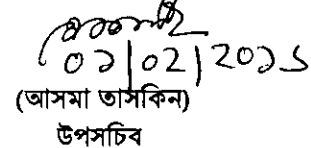 ০১|০২|২০১৬
(আসমা তাসকিন)
উপসচিব